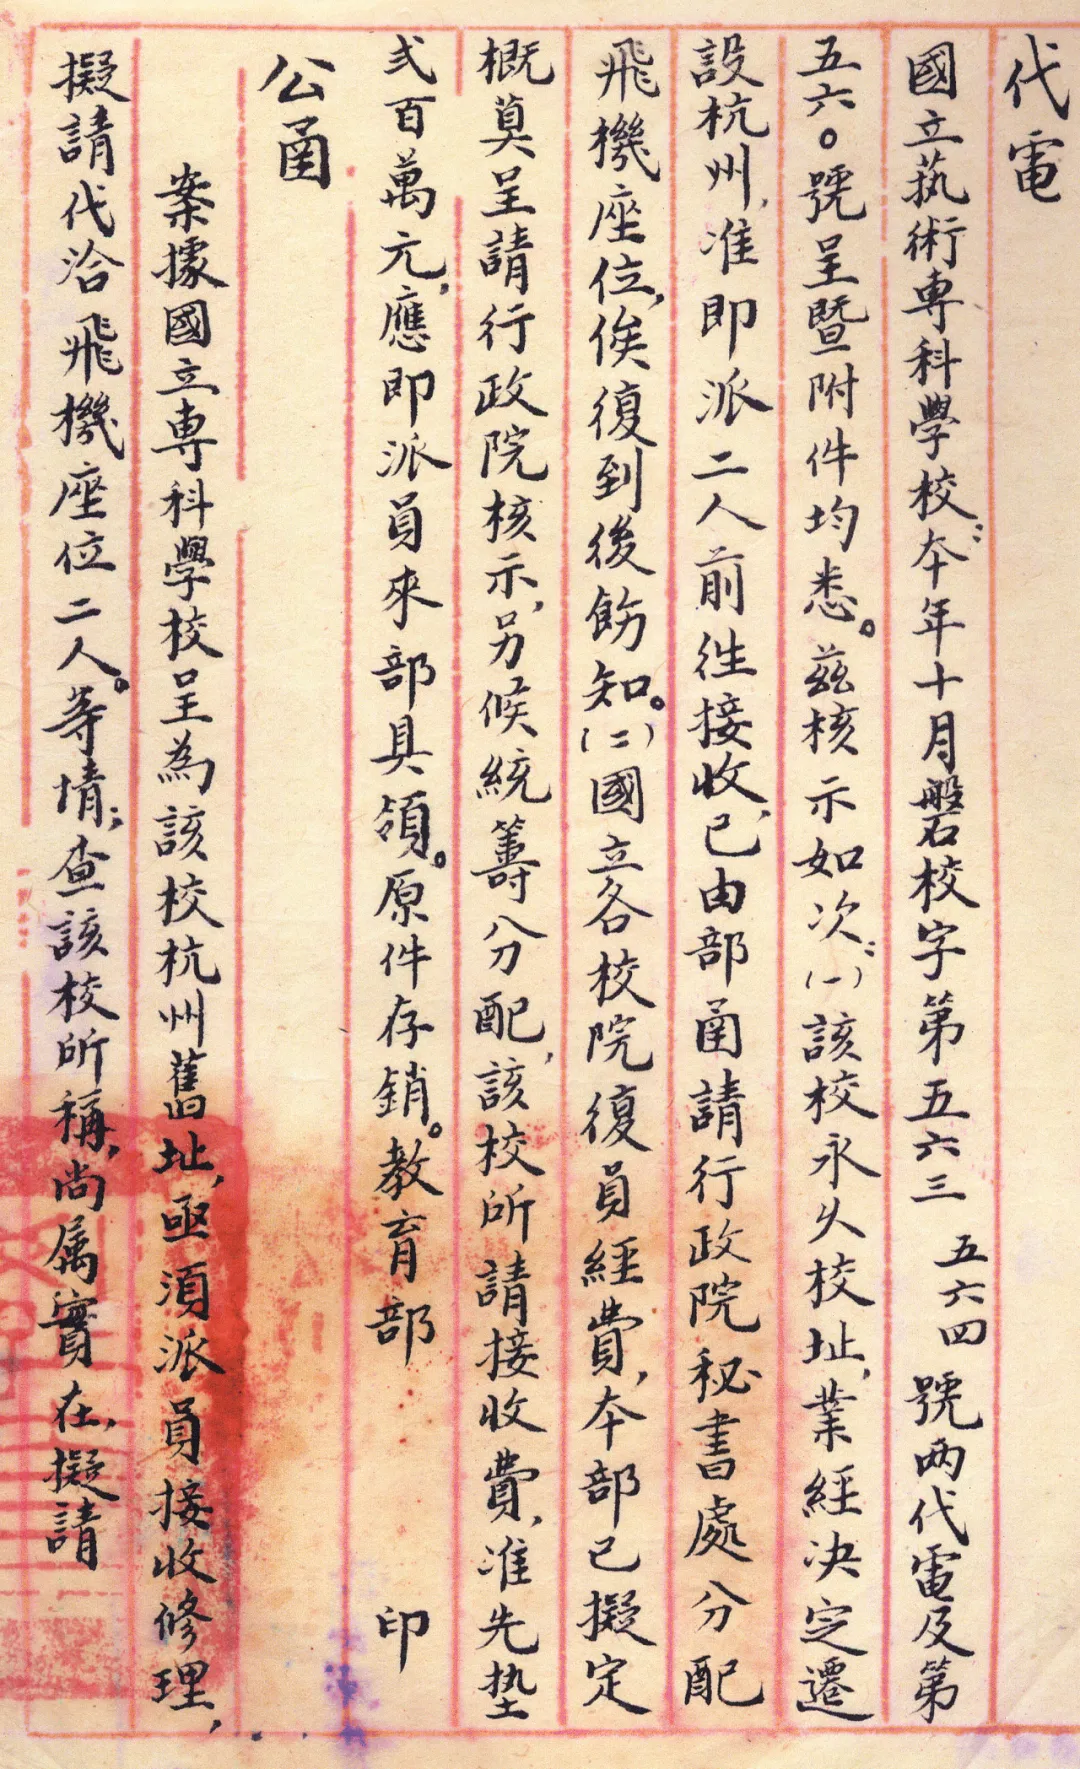 代電
國立藝術專科學校：本年十月磐校字第五六三 五六四 號两代電及第
五六〇號呈暨附件均悉。茲核示如次：（一）該校永久校址，業經决定遷
設杭州，准即派二人前往接收，已由部函請行政院秘書處分配
飛機座位，俟復到後飭知。（二）國立各校院復員經費，本部已擬定
概算呈請行政院核示，另候統籌分配，該校所請接收費，准先墊
弍百萬元，應即派員來部具領。原件存銷。教育部 印
公函
案據國立專科學校呈為該校杭州舊址，亟須派員接收修理，
擬請代洽飛機座位二人。等情；查該校所稱，尚屬實在，擬請